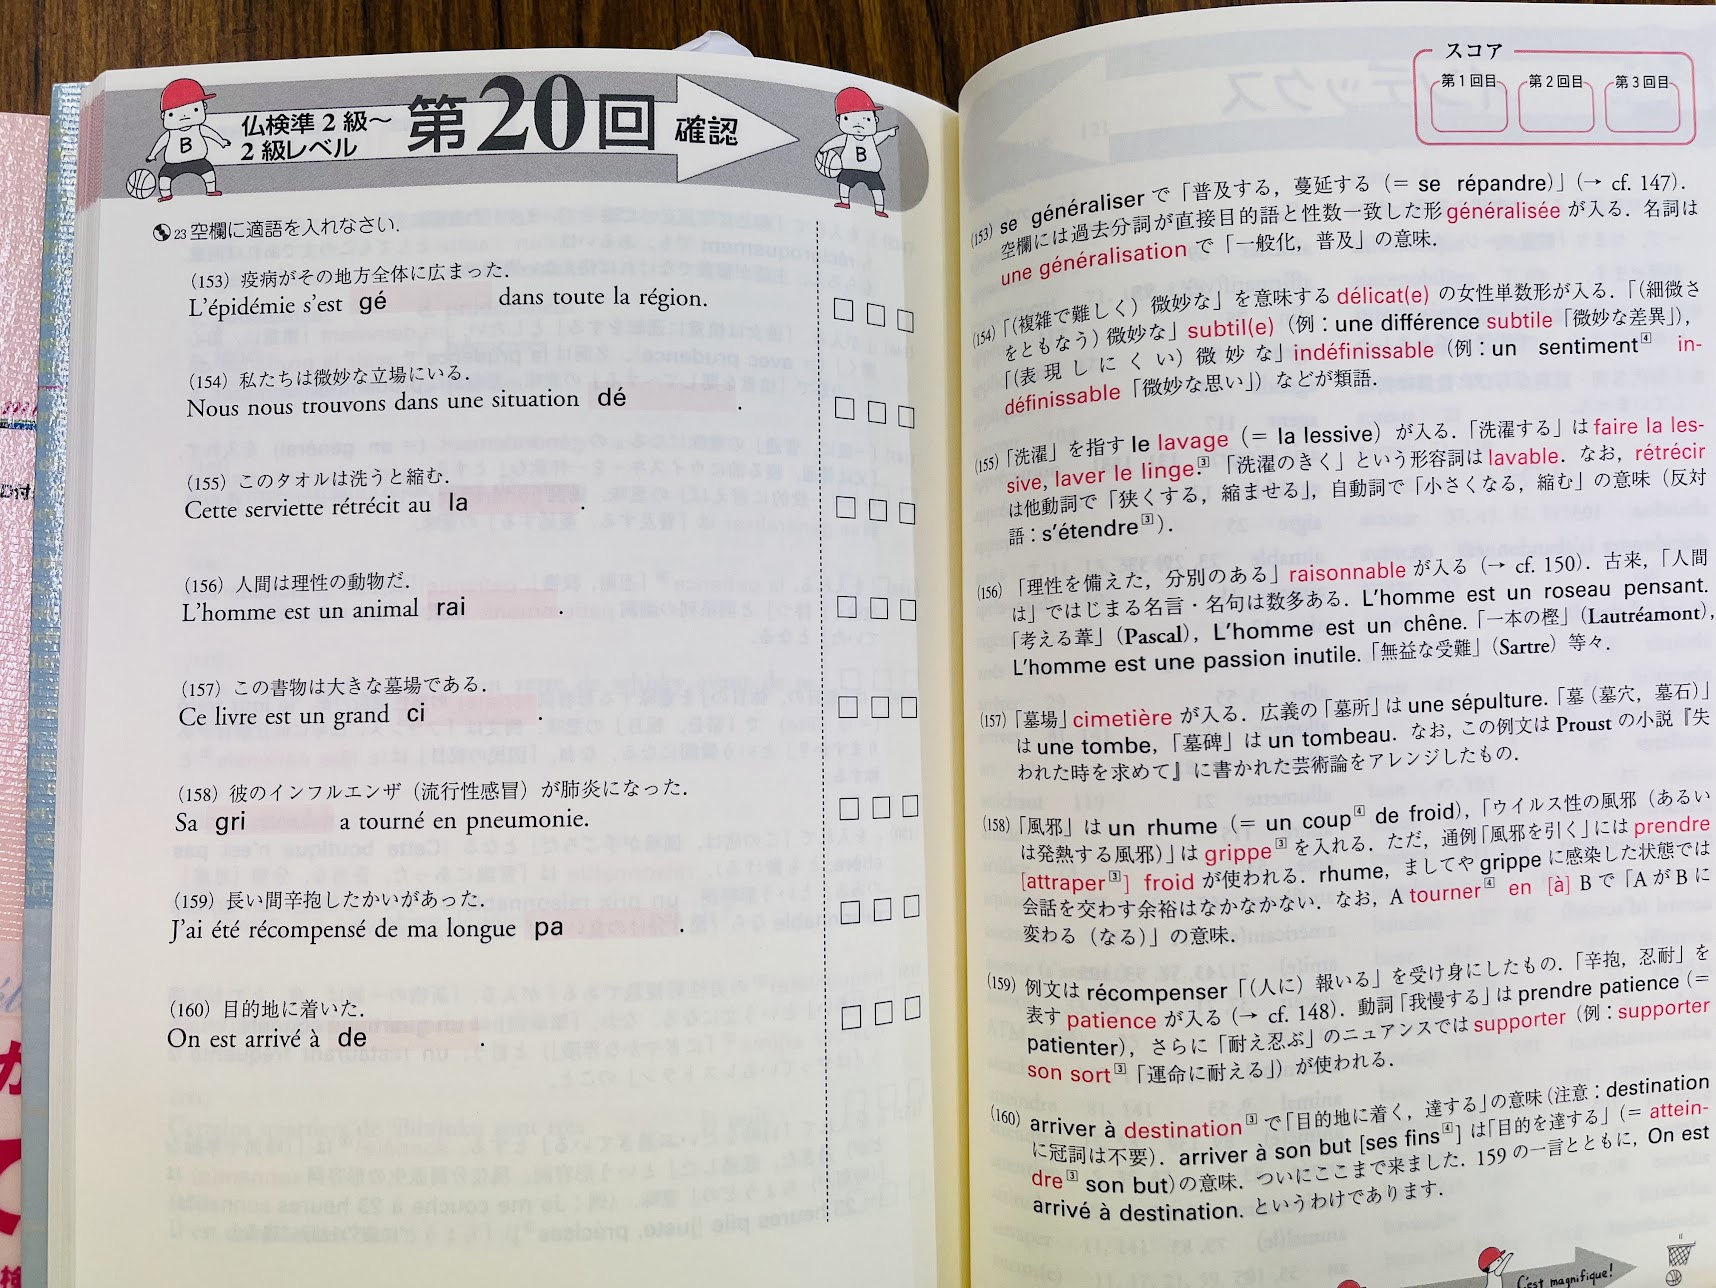 仏検準2級〜
2級レベル
第20回 確認
B
B
23 空欄に適語を入れなさい.
(153) 疫病がその地方全体に広まった.
L'épidémie s'est gé dans toute la région.
(154) 私たちは微妙な立場にいる.
Nous nous trouvons dans une situation dé .
(155) このタオルは洗うと縮む.
Cette serviette rétrécit au la .
(156) 人間は理性の動物だ.
L'homme est un animal rai .
(157) この書物は大きな墓場である.
Ce livre est un grand ci .
(158) 彼のインフルエンザ（流行性感冒）が肺炎になった.
Sa gri a tourné en pneumonie.
(159) 長い間辛抱したかいがあった.
J'ai été récompensé de ma longue pa .
(160) 目的地に着いた.
On est arrivé à de .
スコア
第1回目 第2回目 第3回目
(153) se généraliser で「普及する，蔓延する（= se répandre)」(→ cf. 147).
空欄には過去分詞が直接目的語と性数一致した形 généralisée が入る．名詞は
une généralisation で「一般化，普及」の意味.
(154)「（複雑で難しく）微妙な」を意味する délicat(e) の女性単数形が入る.「（細微さ
をともなう）微妙な」subtil(e)（例：une différence subtile「微妙な差異」),
「（表現しにくい）微妙な」indéfinissable（例：un sentiment④ in-
définissable「微妙な思い」）などが類語.
(155)「洗濯」を指す le lavage（= la lessive）が入る.「洗濯する」は faire la les-
sive, laver le linge.③「洗濯のきく」という形容詞は lavable．なお，rétrécir
は他動詞で「狭くする，縮ませる」，自動詞で「小さくなる，縮む」の意味（反対
語：s'étendre③).
(156)「理性を備えた，分別のある」raisonnable が入る（→ cf. 150）．古来，「人間
は」ではじまる名言・名句は数多ある．L'homme est un roseau pensant.
「考える葦」(Pascal)，L'homme est un chêne.「一本の樫」(Lautréamont),
L'homme est une passion inutile.「無益な受難」(Sartre) 等々.
(157)「墓場」cimetière が入る．広義の「墓所」は une sépulture.「墓（墓穴，墓石）」
は une tombe,「墓碑」は un tombeau．なお，この例文は Proust の小説『失
われた時を求めて』に書かれた芸術論をアレンジしたもの.
(158)「風邪」は un rhume（= un coup④ de froid),「ウイルス性の風邪（あるい
は発熱する風邪）」は grippe③ を入れる．ただ，通例「風邪を引く」には prendre
[attraper③] froid が使われる．rhume，ましてや grippe に感染した状態では
会話を交わす余裕はなかなかない．なお，A tourner④ en [à] B で「A が B に
変わる（なる）」の意味.
(159) 例文は récompenser「（人に）報いる」を受け身にしたもの.「辛抱，忍耐」を
表す patience が入る（→ cf. 148）．動詞「我慢する」は prendre patience（=
patienter)，さらに「耐え忍ぶ」のニュアンスでは supporter（例：supporter
son sort③「運命に耐える」）が使われる.
(160) arriver à destination③ で「目的地に着く，達する」の意味（注意：destination
に冠詞は不要）．arriver à son but [ses fins④] は「目的を達する」（= attein-
dre③ son but）の意味．ついにここまで来ました．159 の一言とともに，On est
arrivé à destination. というわけであります.
C'est magnifique!